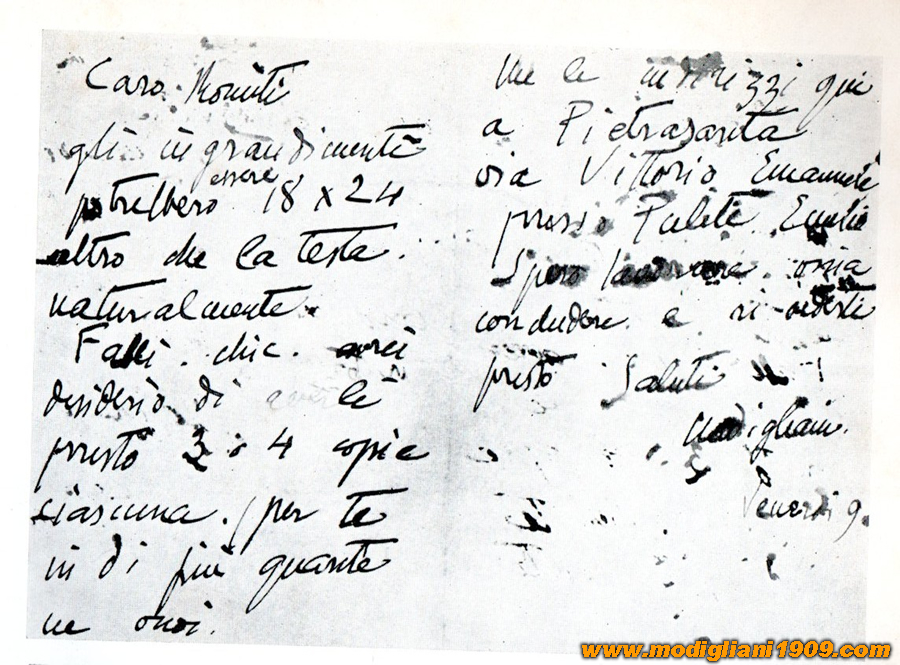 Caro Romiti
gli ingrandimenti
essere
potrebbero 18 x 24
altro che la testa
naturalmente.
Falli chic. avrei
desiderio di averle
presto 3 o 4 copie
ciascuna. per te
in di più quante
ne vuoi.
Me le indirizzi qui
a Pietrasanta
via Vittorio Emanuele
presso Puliti Emilio
Spero
concludere e ri-vederti
presto Saluti
Modigliani.
Venerdi 9.
www.modigliani1909.com